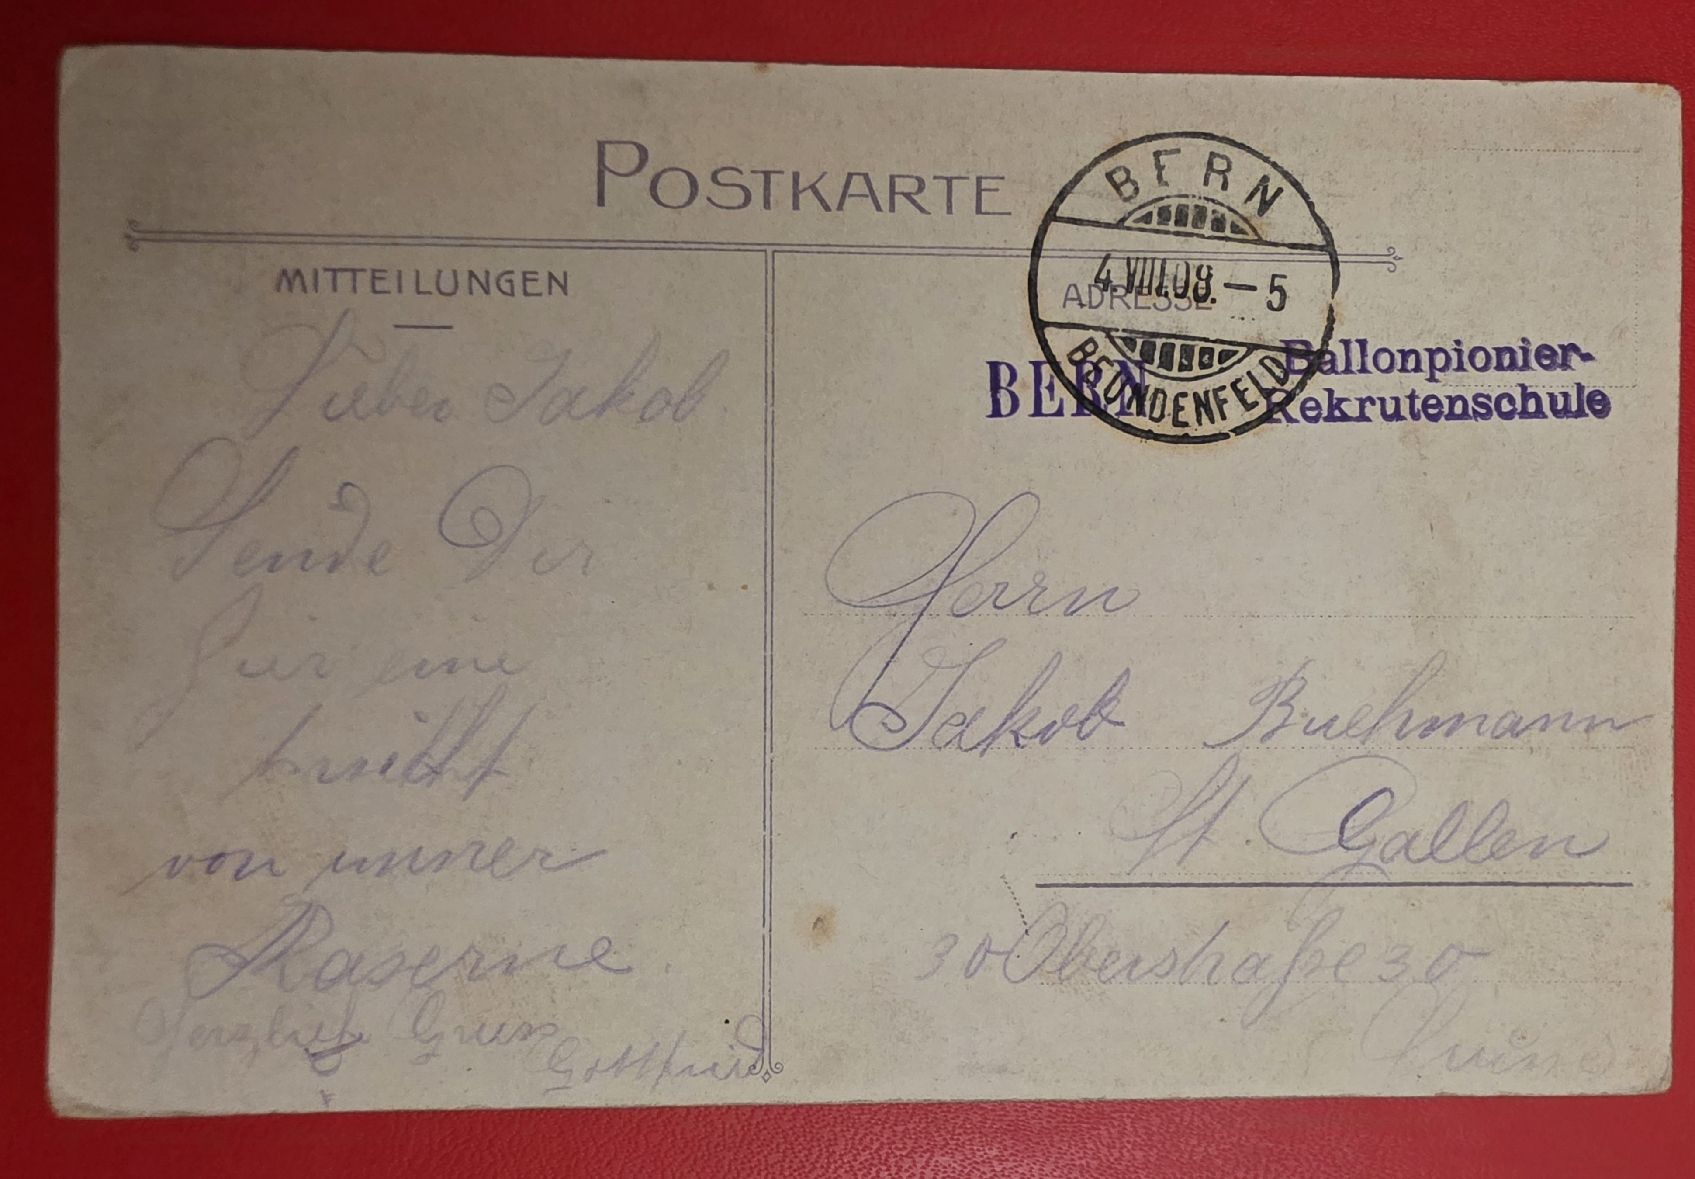 POSTKARTE
BERN
4.VIII.08.–5
BEUNDENFELD
MITTEILUNGEN
ADRESSE
BERN
Ballonpionier-
Rekrutenschule
Lieber Jakob
Sende Dir
hier eine
von unser
Kaserne
Gruss
Gottfried
Herrn
Jakob Buchmann
St. Gallen
30 Oberstraße 30